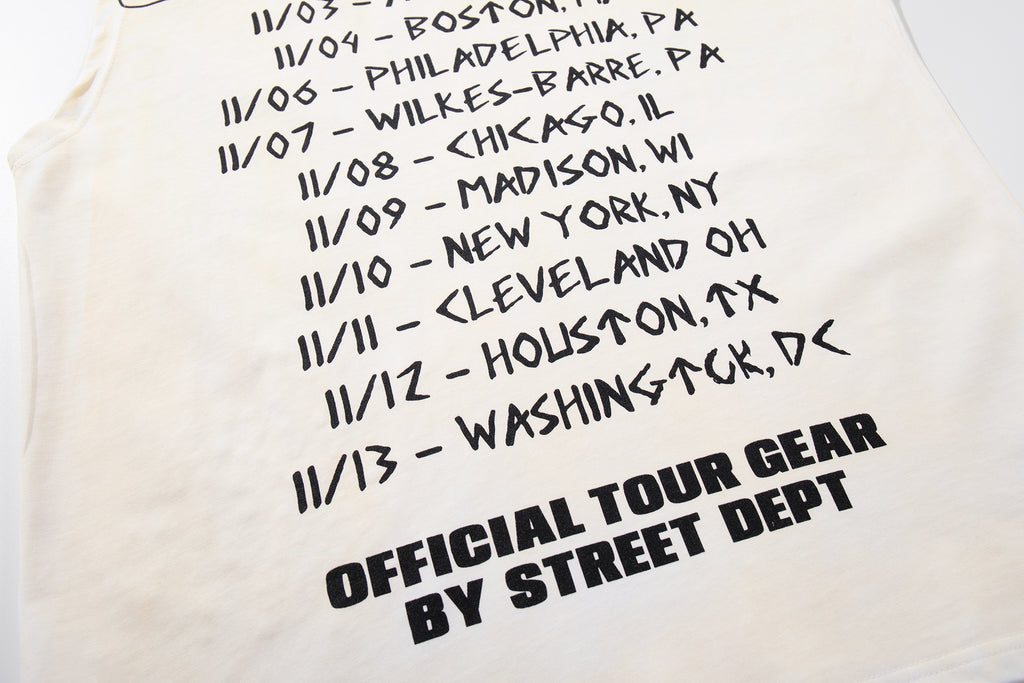 11/03 -
11/04 - BOSTON, MA
11/06 - PHILADELPHIA, PA
11/07 - WILKES-BARRE, PA
11/08 - CHICAGO, IL
11/09 - MADISON, WI
11/10 - NEW YORK, NY
11/11 - CLEVELAND OH
11/12 - HOUSTON, TX
11/13 - WASHINGTCK, DC
OFFICIAL TOUR GEAR
BY STREET DEPT